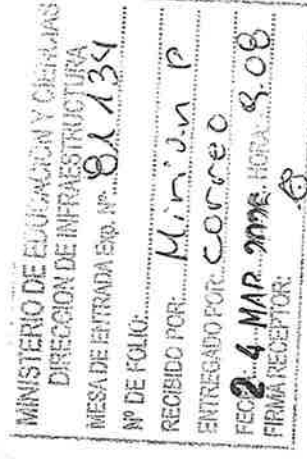 MINISTERIO DE EDUCACION Y CIENCIAS
DIRECCION DE INFRAESTRUCTURA
MESA DE ENTRADA Exp. Nº 81134
Nº DE FOLIO:
RECIBIDO POR:
ENTREGADO POR: Correo
FECHA 24 MAR HORA: 9.08
FIRMA RECEPTOR: